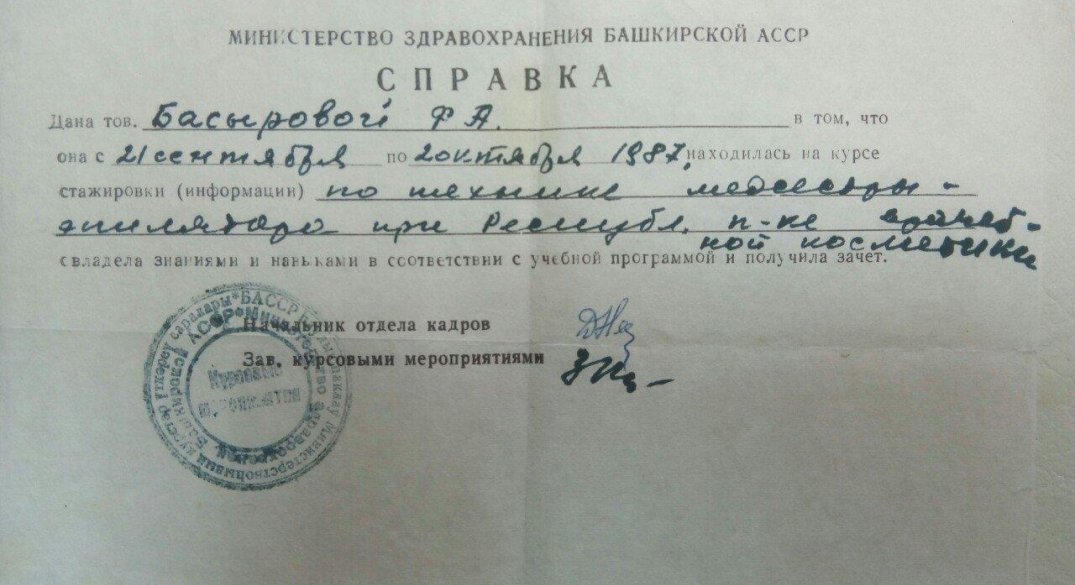 МИНИСТЕРСТВО ЗДРАВОХРАНЕНИЯ БАШКИРСКОЙ АССР
СПРАВКА
Дана тов. Басыровой Ф А. в том, что
она с 21 сентября по 2 октября 1987, находилась на курсе
стажировки (информации) по технике медсестры-
эпилятора при Республ. п-ке врачеб-
ной косметики
овладела знаниями и навыками в соответствии с учебной программой и получила зачет.
Начальник отдела кадров
Зав. курсовыми мероприятиями
БАССР
Министерство здравоохранения Башкирской АССР
Курсовые
мероприятия